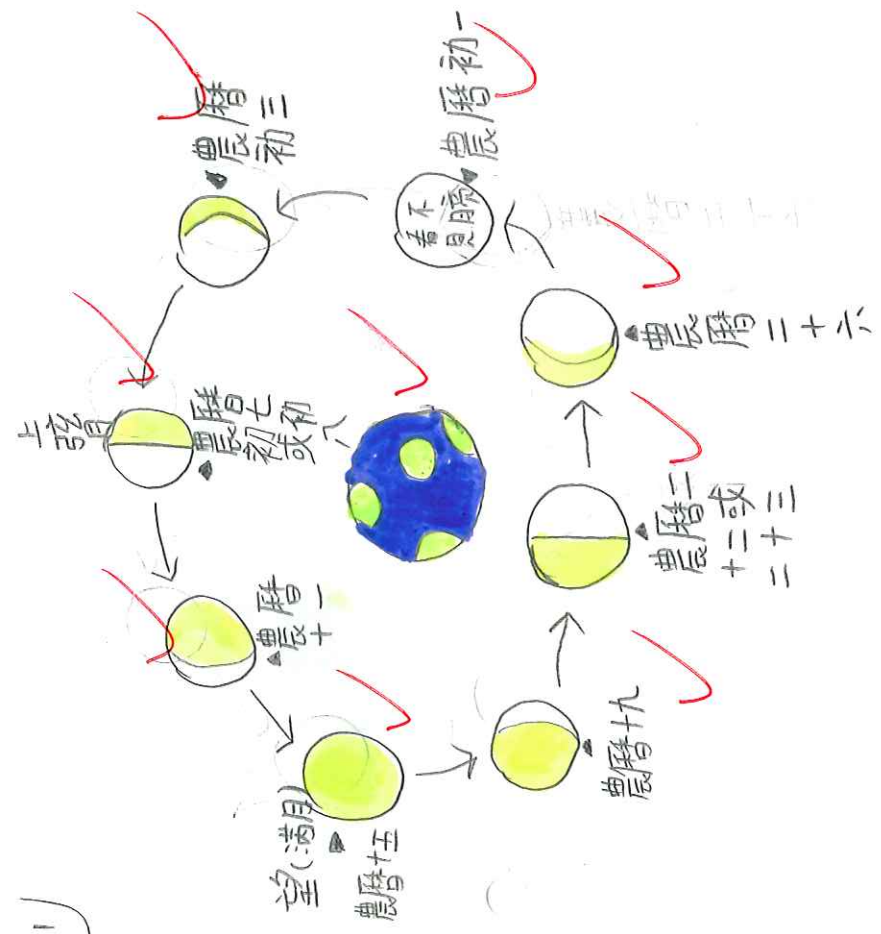 農曆初一
不
看見
農曆
初三
上弦月
農曆
初七
或初
八
農曆
十一
望(滿月)
農曆十五
農曆十九
農曆二
十二或
二十三
農曆二十六